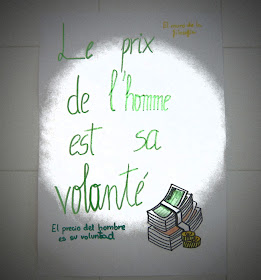 El precio de la
filosofía
Le prix
de l'homme
est sa
volanté
El precio del hombre
es su voluntad